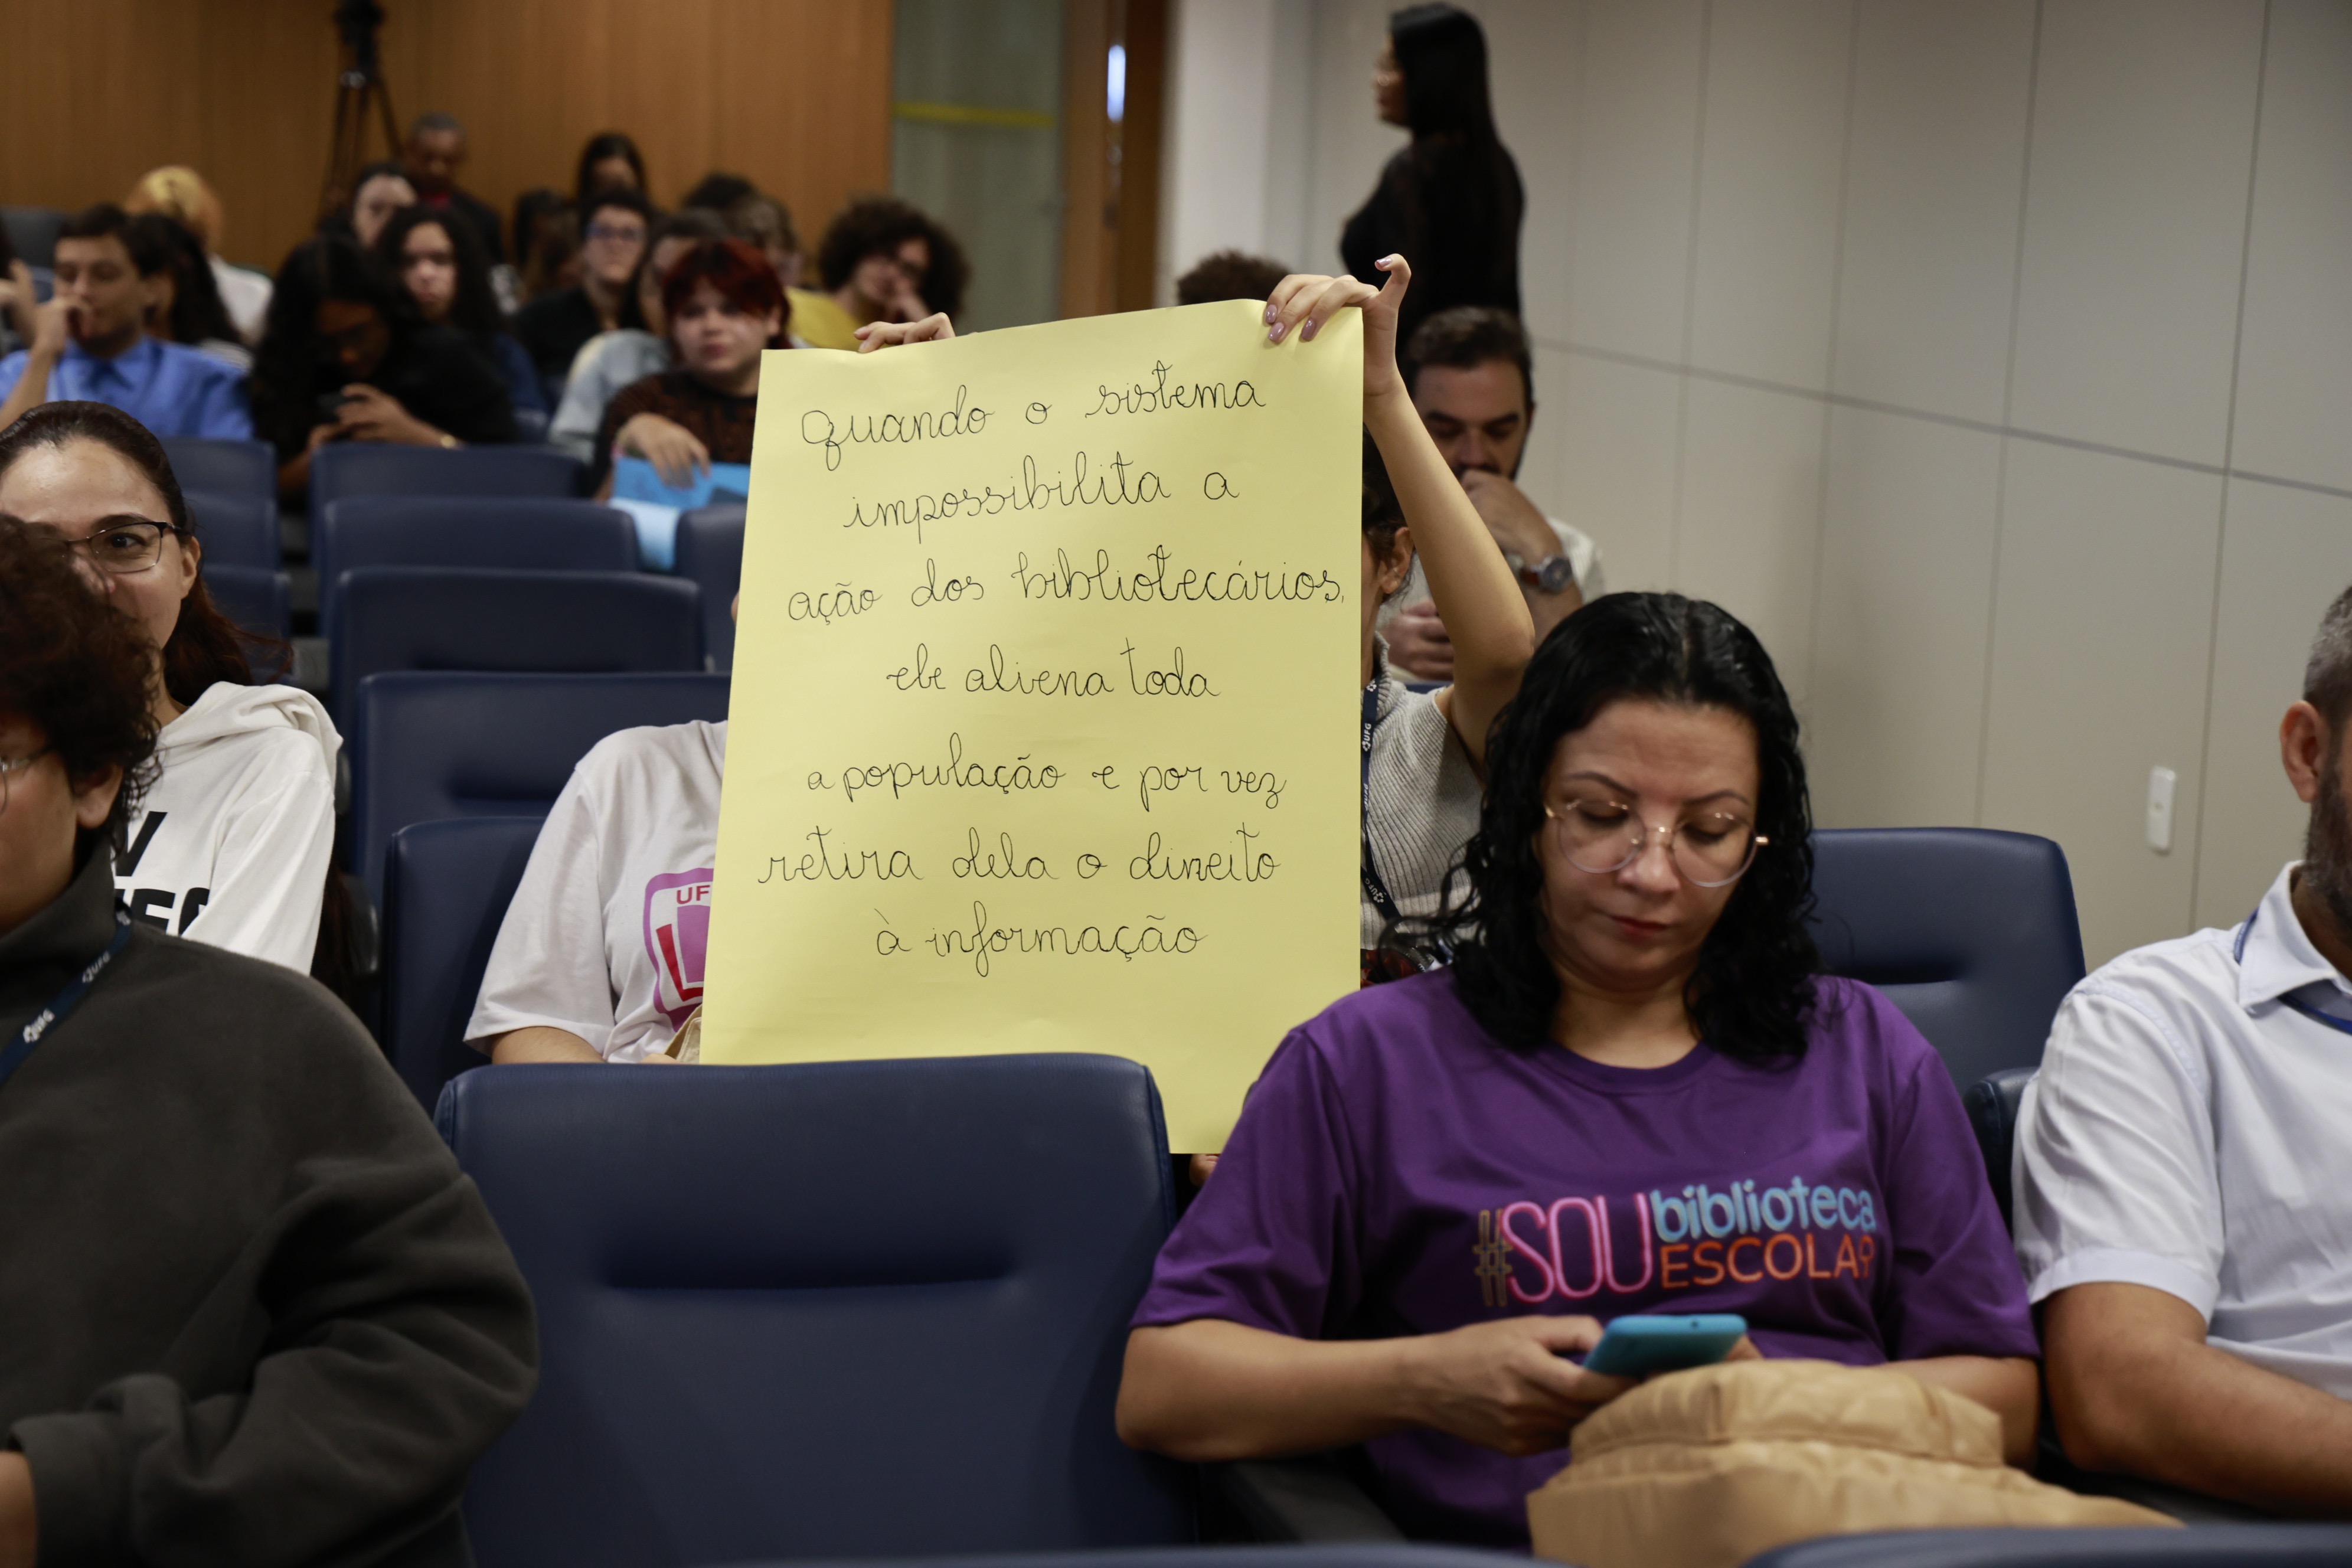 Quando o sistema
impossibilita a
ação dos bibliotecários,
ele aliena toda
a população e por vez
retira dela o direito
à informação
UFG
UFG
#SOU biblioteca
ESCOLAR